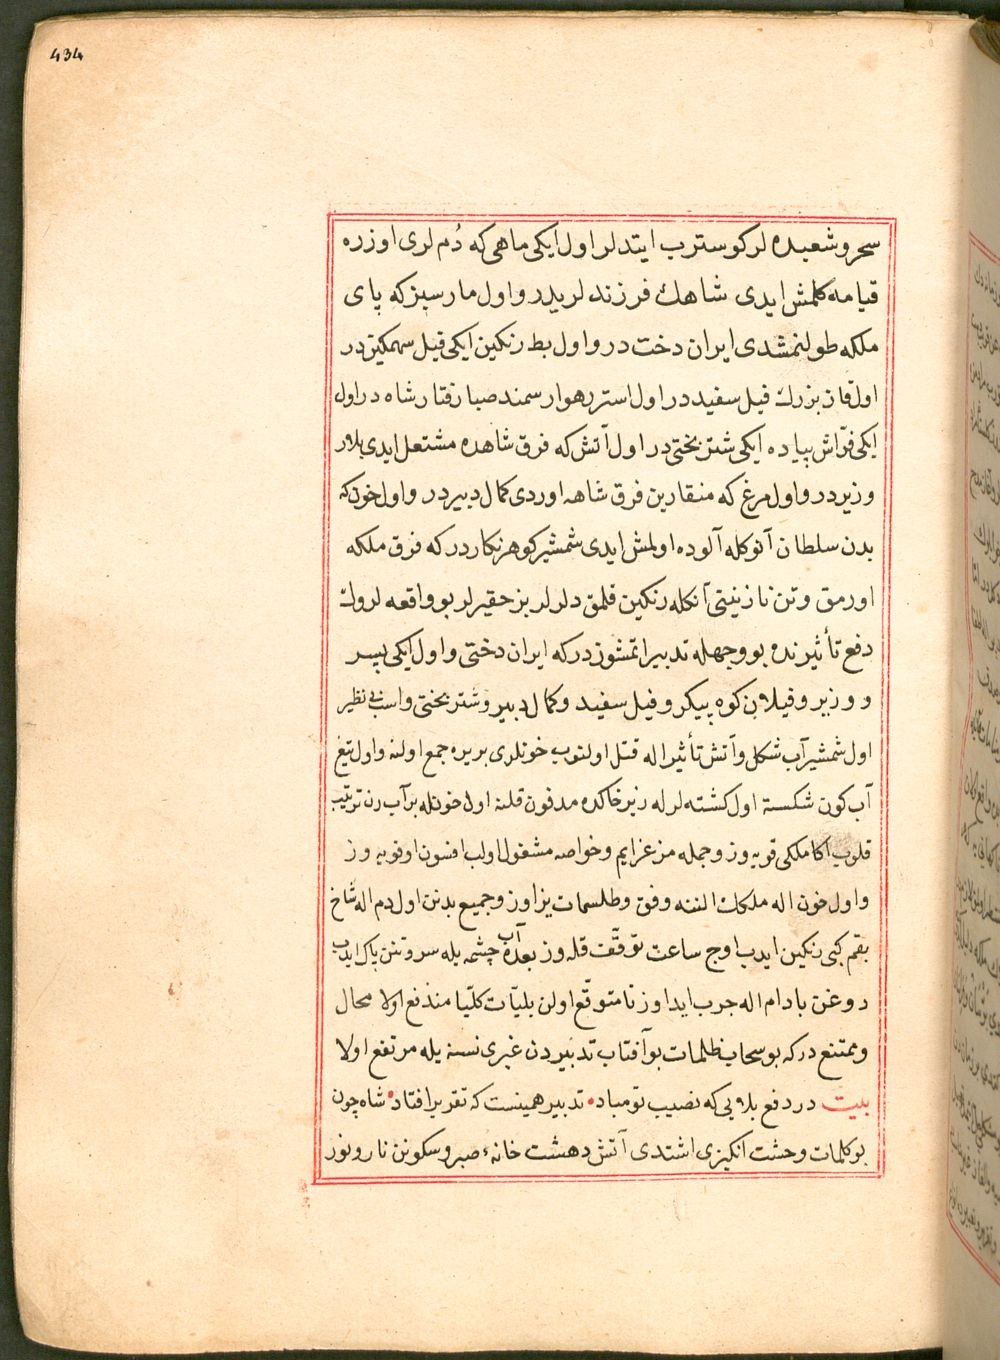 434
سحر و شعبده لر كوسترب ايتدلر اول ايكی ماهی كه دُم لری اوزره
قيامه كلمش ايدی شاهك فرزند لريدر و اول مار سبز كه پای
ملكه طولنمشدی ايران دخت در و اول بط رنكين ايكی فيل سهمكين در
اول قاز بزرك فيل سفيد در اول استر رهوار سمند صبا رفتار شاه در اول
ايكی فرّاش پياده ايكی شتر بختی در اول آتش كه فرق شاهده مشتعل ايدی بلار
وزير در و اول مرغ كه منقارين فرق شاهه اوردی كمال دبير در و اول خون كه
بدن سلطان آنوكله آلوده اولمش ايدی شمشير كوهر نكار در كه فرق ملكه
اورمق و تن نازنينی آنكله رنكين قلمق دلرلر بز حقيرلر بو واقعه لروك
دفع تأثيرنده بو وجهله تدبير اتمشوز در كه ايران دختی و اول ايكی پسر
و وزير و فيلان كوه پيكر و فيل سفيد و كمال دبير و شتر بختی و اسب بی نظير
اول شمشير آب شكل و آتش تأثير اله قتل اولنوب خونلری بر يره جمع اولنه و اول تيغ
آب كون شكسته اول كشته لر له زير خاكده مدفون قلنه اول خونله بر آب زن ترتيب
قلوب اكا ملكی قويه وز و جمله مز عزايم و خواصه مشغول اولب افسون اوقويه وز
و اول خون اله ملكك الننه وفق و طلسمات يزاوز و جميع بدنن اول دم اله شاخ
بقم كبی رنكين ايدب اوج ساعت توقّف قله وز بعده آب چشمه يله سر و تنن پاك ايدب
روغن بادام اله چرب ايداوز تا متوقّع اولن بليّات كليّا مندفع اولا محال
و ممتنع در كه بو سحاب ظلمات بو آفتاب تدبيردن غيری نسنه يله مرتفع اولا
بيت در دفع بلايی كه نصيب تو مباد • تدبير همينست كه تقرير افتاد • شاه چون
بو كلمات وحشت انكيزی اشتدی آتش دهشت خانهٔ صبر و سكونن نار و نور